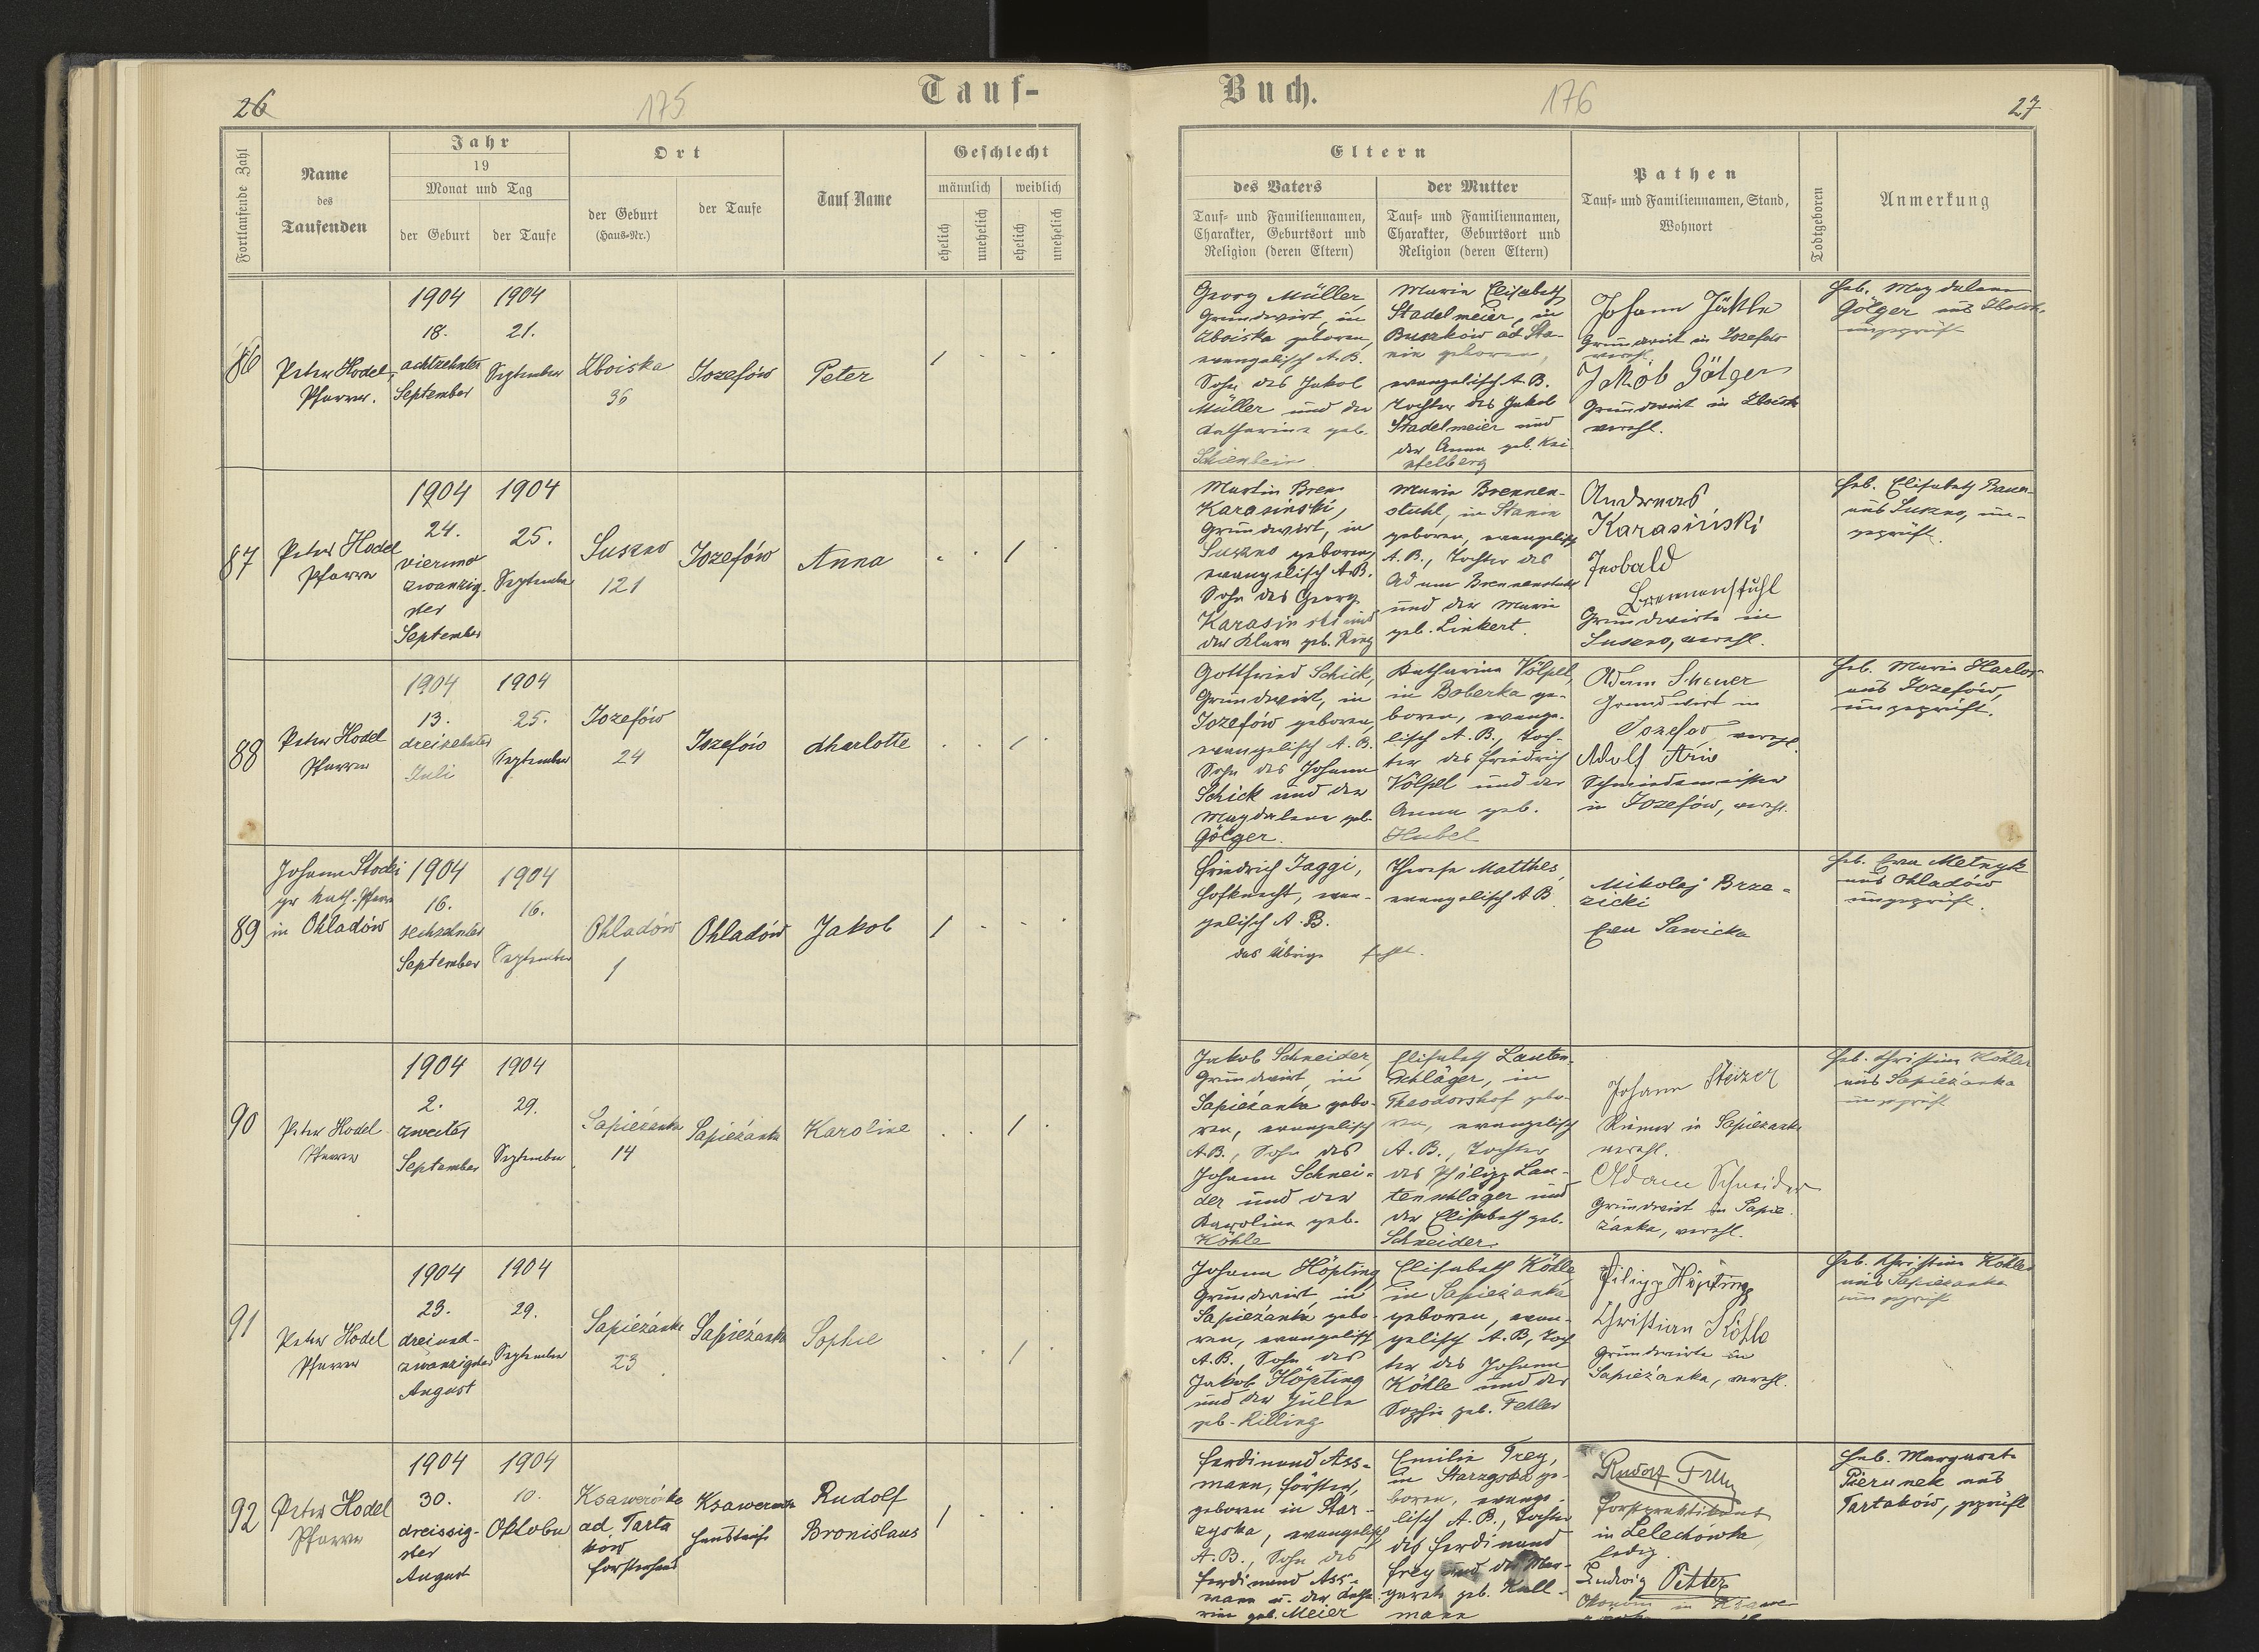 26
175
Tauf-
Fortlaufende Zahl
Name
des
Taufenden
Jahr
19
Monat und Tag
der Geburt
der Taufe
Ort
der Geburt
(Haus-Nr.)
der Taufe
Tauf Name
Geschlecht
männlich
weiblich
ehelich
unehelich
ehelich
unehelich
86
Peter Hodel,
Pfarrer.
1904
18.
achtzehnter
September
1904
21.
September
Zboiska
36
Jozefów
Peter
1
87
Peter Hodel
Pfarrer
1904
24.
vierund
zwanzig-
ster
September
1904
25.
September
Suszno
121
Jozefów
Anna
1
88
Peter Hodel
Pfarrer
1904
13.
dreizehnter
Juli
1904
25.
September
Jozefów
24
Jozefów
Charlotte
1
89
Johann Stocki
gr kath. Pfarrer
in Ohladów
1904
16.
sechzehnter
September
1904
16.
September
Ohladów
1
Ohladów
Jakob
1
90
Peter Hodel
Pfarrer
1904
2.
zweiter
September
1904
29.
September
Sapieżanka
14
Sapieżanka
Karoline
1
91
Peter Hodel
Pfarrer
1904
23.
dreiund-
zwanzigster
August
1904
29.
September
Sapieżanka
23
Sapieżanka
Sophie
1
92
Peter Hodel
Pfarrer
1904
30.
dreissig-
ster
August
1904
10.
Oktober
Ksawerówka
ad. Tarta
ków
Forsthaus
Ksawerówka
Haustaufe
Rudolf
Bronislaus
1
Buch.
176
27
Eltern
des Vaters
Tauf- und Familiennamen,
Charakter, Geburtsort und
Religion (deren Eltern)
der Mutter
Tauf- und Familiennamen,
Charakter, Geburtsort und
Religion (deren Eltern)
Pathen
Tauf- und Familiennamen, Stand,
Wohnort
Todtgeboren
Anmerkung
Georg Müller,
Grundwirt, in
Zboiska geboren,
evangelisch A.B.
Sohn des Jakob
Müller und der
Katharina geb.
Schienbein
Maria Elisabeth
Stadelmeier, in
Buszków ad Sta-
nin geboren,
evangelisch A.B.
Tochter des Jakob
Stadelmeier und
der Anna geb. Kai-
pfelberg
Johann Jäckle
Grundwirt in Jozefów
verehl.
Jakob Gölger
Grundwirt in Zboiska
verehl.
Heb. Magdalena
Gölger aus Zboiska
ungeprüft
Martin Brem
Karasiński,
Grundwirt, in
Suszno geboren,
evangelisch A.B.
Sohn des Georg
Karasinski und
der Klara geb. Ring
Maria Brennen-
stuhl, in Stanin
geboren, evangelisch
A.B., Tochter des
Adam Brennenstuhl
und der Maria
geb. Linkert.
Andreas
Karasiński
Theobald
Brennenstuhl
Grundwirte in
Suszno, verehl.
Heb. Elisabeth Bauer
aus Suszno, un-
geprüft.
Gottfried Schick,
Grundwirt, in
Jozefów geboren,
evangelisch A.B.
Sohn des Johann
Schick und der
Magdalena geb.
Gölger.
Katharina Völpel,
in Boberka ge-
boren, evange-
lisch A.B., Toch-
ter des Friedrich
Völpel und der
Anna geb.
Hubel
Adam Scheuer
Grundwirt in
Jozefow verehl.
Adolf
Schmiedemeister
in Jozefów, verehl.
Heb. Maria Harlos
aus Jozefów,
ungeprüft.
Friedrich Jaggi,
Hofknecht, evan-
gelisch A.B.
das Übrige fehlt.
Therese Matthes,
evangelisch A B
Mikolaj Brze-
zicki
Ewa Sawicka
Heb. Ewa Melnyk
aus Ohladów
ungeprüft.
Jakob Schneider
Grundwirt, in
Sapieżanka gebo-
ren, evangelisch
A.B., Sohn des
Johann Schnei-
der und der
Karolina geb.
Köhle
Elisabeth Lauten-
schläger, in
Theodorshof gebo-
ren, evangelisch
A.B., Tochter
des Philipp Lau-
tenschläger und
der Elisabeth geb.
Schneider.
Johann Steizer
Riemer in Sapieżanka
verehl.
Adam Schneider
Grundwirt in Sapie-
żanka, verehl.
Heb. Christina Köhler
aus Sapieżanka
ungeprüft
Johann Höpting
Grundwirt in
Sapieżanka gebo-
ren, evangelisch
A.B., Sohn des
Jakob Höpting
und der Julia
geb. Killing
Elisabeth Köhle
in Sapieżanka
geboren, evan-
gelisch A.B, Toch
ter des Johann
Köhle und der
Sophie geb. Fehler
Filipp Höpting
Christian Köhle
Grundwirte in
Sapieżanka, verehl.
Heb. Christina Köhler
aus Sapieżanka
ungeprüft
Ferdinand Ass-
mann, Förster,
geboren in Star-
zyska, evangelisch
A.B., Sohn des
Ferdinand Ass-
mann u. der Katha-
rina geb. Meier
Emilie Frey,
in Starzyska ge-
boren, evange-
lisch A.B., Tochter
des Ferdinand
Frey und der Mar-
gareta geb. Kall-
mann
Rudolf Frey
Forstpraktikant
in Lelechówka
ledig.
Ludwig Petter
Ökonom in Ksawe-
Heb. Margareta
Pierunek aus
Tartaków, geprüft